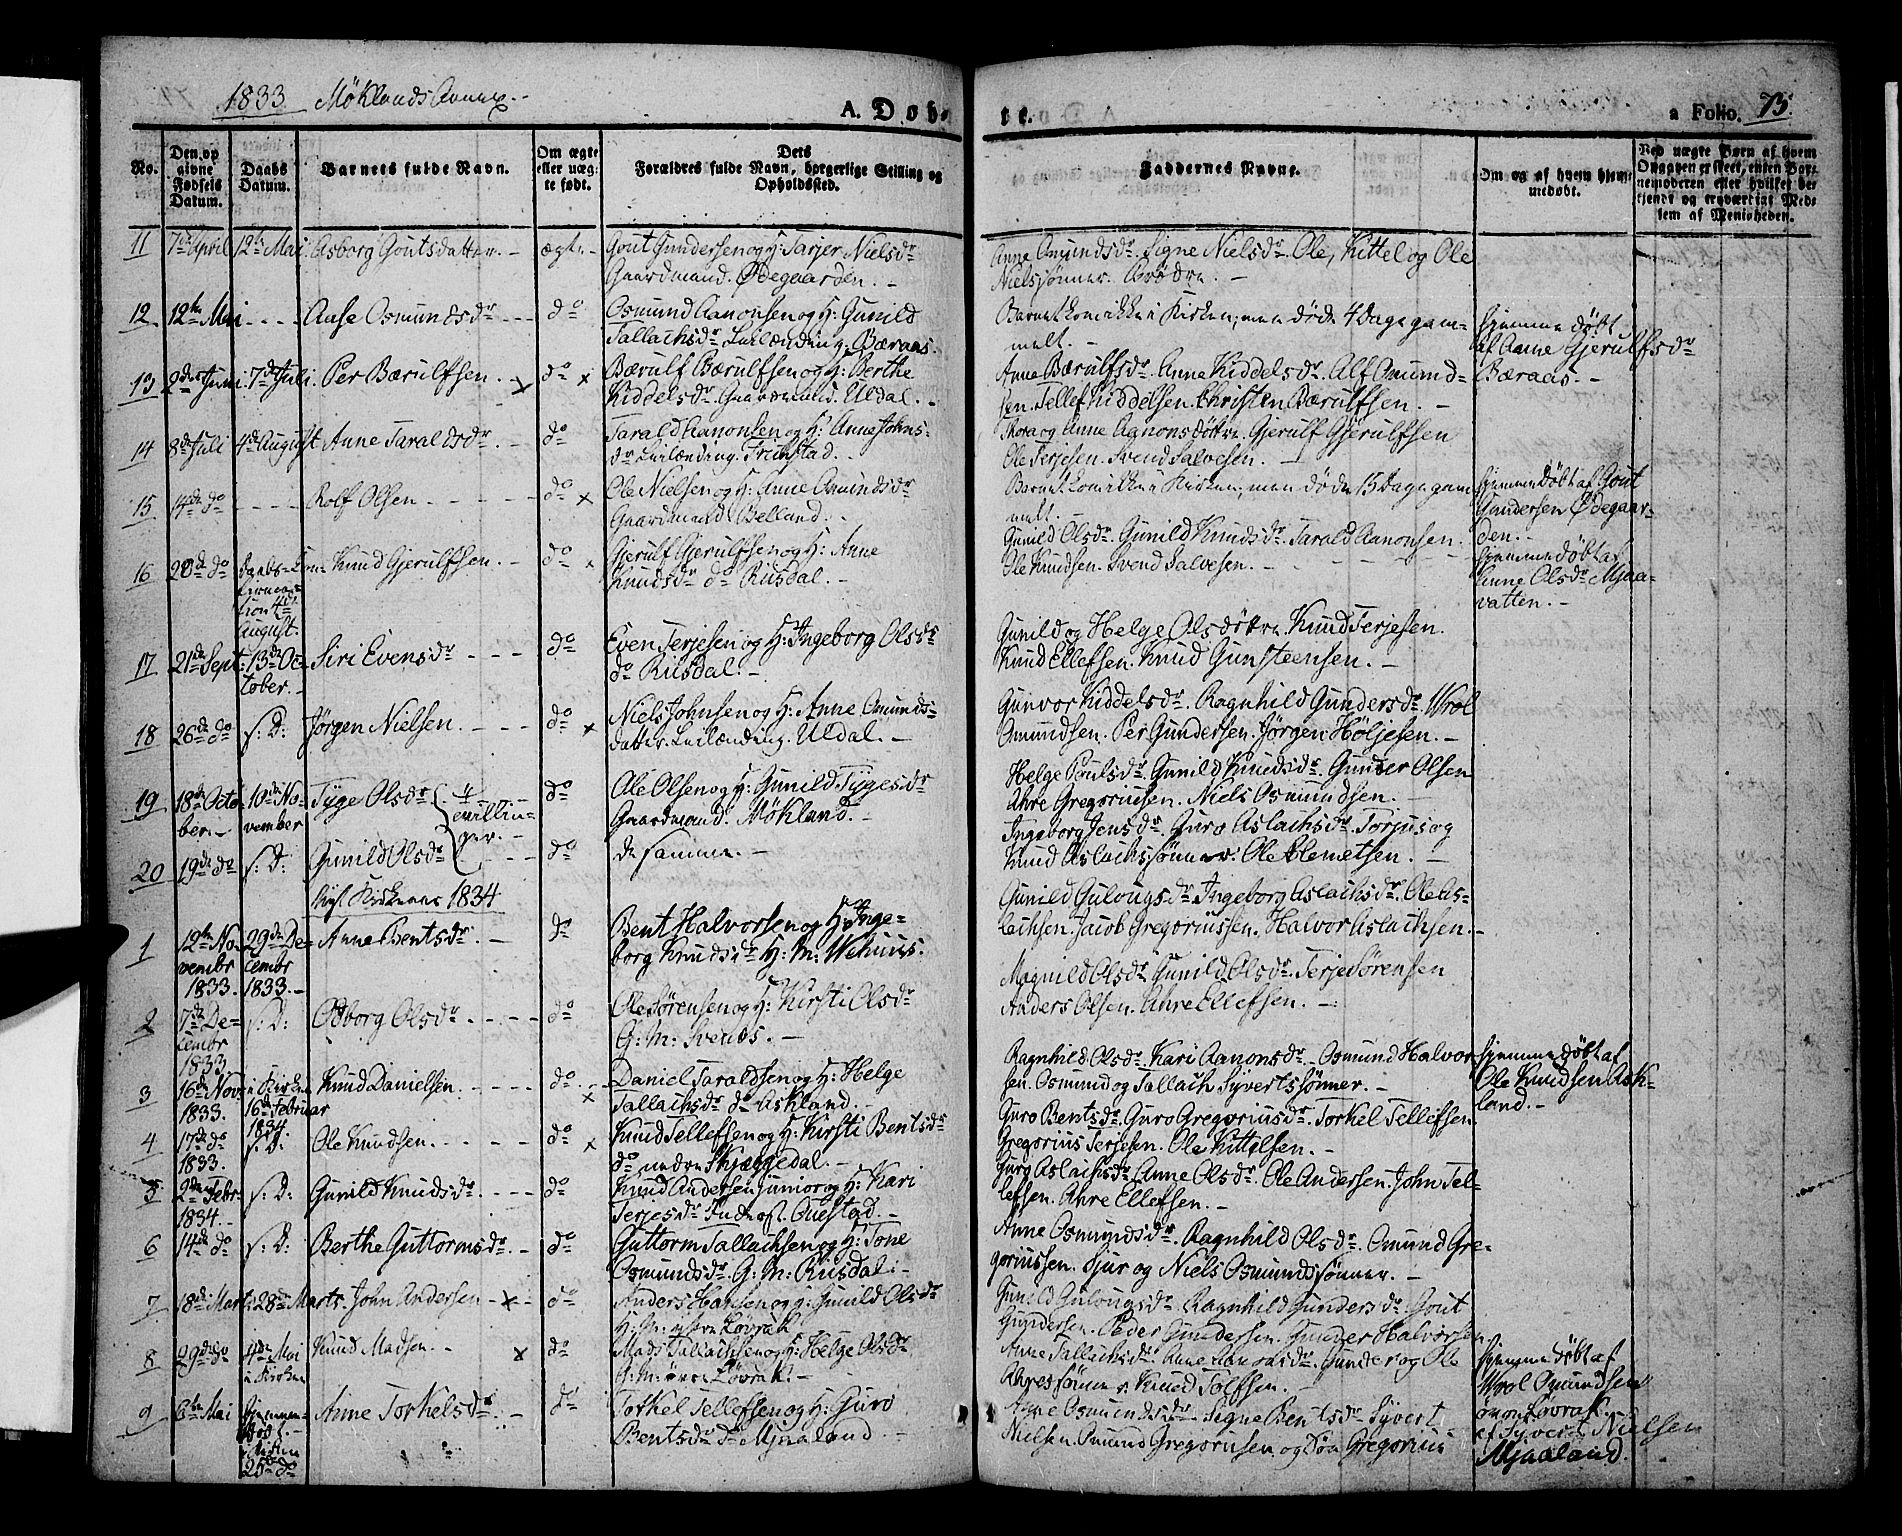 1833 Møklands Annex.-
A. Døb-
te.
a Folio. 75.
No.
Den op
givne
Fødsels
Datum.
Daabs
Datum.
Barnets fulde Navn.
Om ægte
eller uæg-
te født.
Dets
Forældres fulde Navn, borgerlige Stilling og
Opholdssted.
Faddernes Navne.
Om og af hvem hjem-
medøbt.
Ved uægte Børn af hvem
Opgaven er skeet, enten Bar-
nemoderen eller hvilket be-
kjendt og troværdigt Med-
lem af Menigheden.
11 7de April 12te Mai Asborg Goutsdatter. - ægte - Gout Gundersen og H: Tarjer Nielsdr
Gaardmand. Ødegaarden. -
Anne Omundsdr. Signe Nielsdr. Ole, Kittel og Ole
Nielsønner. Brødre. -
12 12te Mai - - - Aase Osmundsdr - - - do Osmund Aanonsen og H: Gunild
Tallachsdr Leilænding. Bæraas.
Barnet kom ikke i Kirken, men døde 4 Dage gam-
melt. -
hjemmedøbt
af Anne Gjerulfsdr
Bæraas. -
13 2den Juni 7de Juli. Per Bærulfsen. x do x Bærulf Bærulfsen og H: Berthe
Kiddelsdr. Gaardmand. Uldal. -
Anne Bærulfsdr. Anne Kiddelsdr. Alf Omund-
sen. Tellef Kiddelsen. Christen Bærulfsen. -
14 8de Juli 4de August Anne Taraldsdr. - do Tarald Aanonsen og H: Anne Johns-
dr Leilænding. Frinstad. -
Thora og Anne Aanonsdøttre. Gjerulf Gjerulfsen
Ole Terjesen. Svend Salvesen. -
15 14de do - - - - Rolf Olsen. - - - - - do x Ole Nielsen og H: Anne Omundsdr
Gaardmand Belland. -
Barnet kom ikke i Kirken, men døde 15 Dage gam-
melt. -
hjemmedøbt af Gout
Gundersen Ødegaar-
den. -
16 28de do Daabs-Con-
firma-
tion 4de
August. Knud Gjerulfsen. - do x Gjerulf Gjerulfsen og H: Anne
Knudsdr do Risdal. -
Gunild Olsdr. Gunild Knudsdr. Tarald Aanonsen.
Ole Knudsen. Svend Salvesen. - - - - -
hjemmedøbt af
Anne Olsdr. Mjaa-
vatten. -
17 21de Sept: 13de Oc-
tober. - Siri Evensdr - - - do Even Terjesen og H: Ingeborg Olsdr
do Risdal. -
Gunild og Helge Olsdøttre. Knud Terjesen.
Knud Ellefsen. Knud Gunsteensen. -
18 26de do s: D: Jørgen Nielsen. - - - do x Niels Johnsen og H: Anne Omunds-
datter. Leilænding. Uldal. -
Gunvor Kiddelsdr. Ragnhild Gundersdr. Wrol
Omundsen. Per Gundersen. Jørgen Høljesen. -
19 18de Octo-
ber. - 10de No-
vember Tyge Olsdr - tvillin-
ger. - do Ole Olsen og H: Gunild Tygesdr
Gaardmand. Møkland. -
Helge Poulsdr. Gunild Knudsdr. Gunder Olsen
Ahre Gregoriussen. Niels Osmundsen. -
20 19de do s: D: Gunild Olsdr - - - do de samme. -
Ingeborg Jensdr. Guro Aslachsdr. Torjus og
Knud Aslachssønner. Ole Clemetsen. -
Kirkeaar 1834
1 12te No-
vembr
1833. 29de De-
cembr
1833. - Anne Bentsdr. - do Bent Halvorsen og H: Inge-
borg Knudsdr H: M: Wehuus.
Gunild Gulougsdr. Ingeborg Aslachsdr. Ole As-
lachsen. Jacob Gregoriussen. Halvor Aslachsen. -
2 7de De-
cembr
1833 s: D: Odborg Olsdr. - - - - do Ole Sørensen og H: Kirsti Olsdr
G: M: Svenøs. -
Magnild Olsdr. Gunild Olsdr. Terje Sørensen
Anders Olsen. Ahre Ellefsen. -
3 16de Novr
1833. i Kirken
16de Februar
1834. Knud Danielsen. - - - - do x Daniel Taraldsen og H: Helge
Tallachsdr do Askland. -
Ragnhild Olsdr. Kari Aanonsdr. Osmund Halvor-
sen. Osmund og Tallach Syvertssønner. -
hjemmedøbt af
Ole Knudsen Ask-
land. -
4 17de do
1833. s: D: Ole Knudsen. - - - - do x Knud Tellefsen og H: Kirsti Bentsdr
do nedre Skjæggedal. -
Guro Bentsdr. Guro Gregoriusdr. Torkel Tellefsen
Gregorius Terjesen. Ole Kittelsen. -
5 2den Febr
1834. - s: D: Gunild Knudsdr. - - - do Knud Andersen junior og H: Kari
Terjesdr Inderst. Ouestad. -
Guro Aslachsdr. Anne Olsdr. Ole Andersen. John Tel-
lefsen. Ahre Ellefsen. -
6 14de do s: D: Berthe Guttormsdr. - do Guttorm Tallachsen og H: Tone
Osmundsdr. G: M: Risdal. -
Anne Osmundsdr. Ragnhild Olsdr. Omund Gre-
goriussen. Sjur og Niels Osmundssønner. -
7 18de Marts 28de Marts. John Andersen - x - do Anders Hansen og H: Gunild Olsdr
H: M: østre Løvrak
Gunild Gulougsdr. Ragnhild Gundersdr. Gout
Gundersen. Peder Gundersen. Gunder Halvorsen
8 29de do 4de Mai
i Kirken Knud Madsen. - x do Mads Tallachsen og H: Helge Olsdr
G: M: øvre Løvrak. -
Anne Tallachsdr. Anne Aanonsdr. Gunder og Ole
Ahressønner. Knud Tolfsen. -
hjemmedøbt af
Wrol Omundsen
Løvrak. -
9 6te Mai
hjemme-
døbt. -
i Kirken
25de do Anne Torkelsdr. - do Torkel Tellefsen og H: Guro
Bentsdr do Mjaaland. -
Anne Osmundsdr. Signe Bentsdr. Syvert
Nielsen. Omund Gregoriusen og Søn Gregorius
af Syvert Nielsen
Mjaaland.